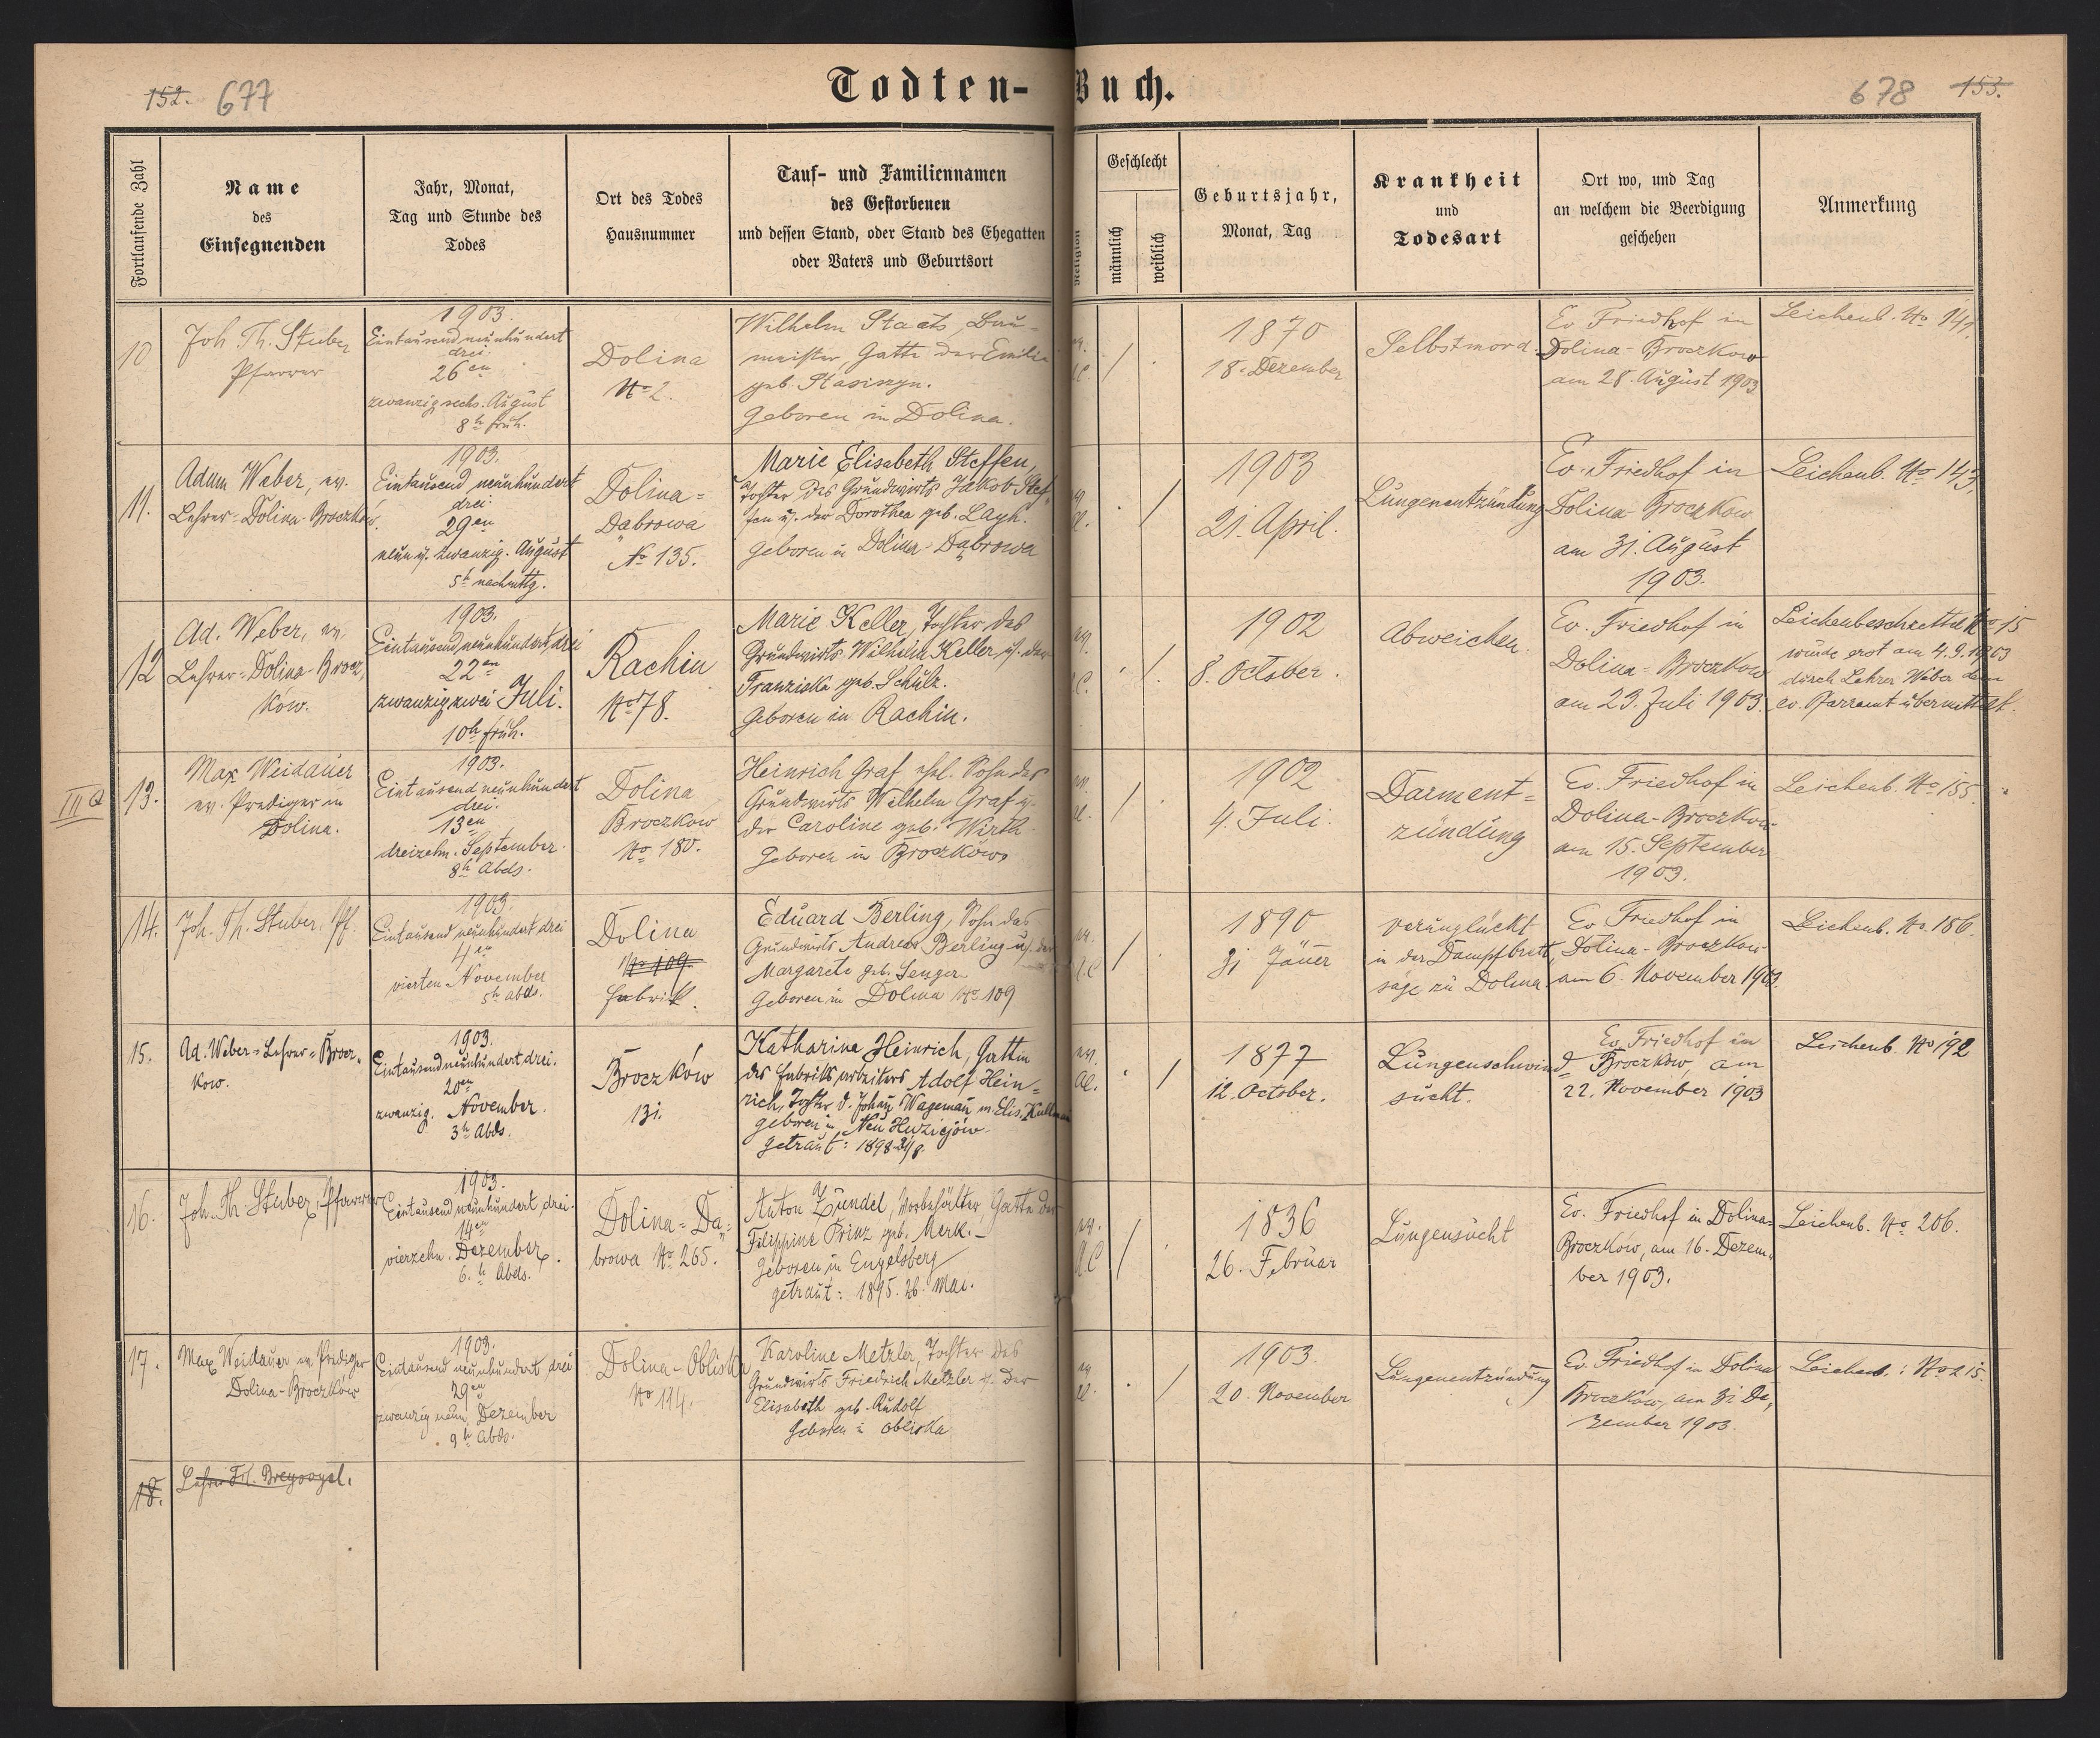 152. 677
Todten-Buch.
678 153.
Fortlaufende Zahl
Name
des
Einsegnenden
Jahr, Monat,
Tag und Stunde des
Todes
Ort des Todes
Hausnummer
Tauf- und Familiennamen
des Gestorbenen
und dessen Stand, oder Stand des Ehegatten
oder Vaters und Geburtsort
Religion
Geschlecht
männlich
weiblich
Geburtsjahr,
Monat, Tag
Krankheit
und
Todesart
Ort wo, und Tag
an welchem die Beerdigung
geschehen
Anmerkung
10
Joh. Th. Stuber
Pfarrer
1903.
Eintausend neunhundert
drei.
26en
zwanzig sechs. August
8h früh.
Dolina
No 2.
Wilhelm Staats, Bau-
meister, Gatte der Emilie
geb.
Geboren in Dolina.
1870
18. Dezember
Selbstmord.
Ev. Friedhof in
Dolina-Broczkow
am 28. August 1903
Leichenb. No 141.
11.
Adam Weber, ev.
Lehrer-Dolina-Broczków.
1903.
Eintausend neunhundert
drei.
29en
neun u. zwanzig. August
5h nachmttg.
Dolina-
Dąbrowa
No 135.
Marie Elisabeth Steffen,
Tochter des Grundwirts Jakob Stef-
fen u. der Dorothea geb. Layh.
Geboren in Dolina-Dąbrowa
1903
21. April.
Lungenentzündung
Ev. Friedhof in
Dolina-Broczkow
am 31. August
1903.
Leichenb. No 143.
12
Ad. Weber, ev.
Lehrer-Dolina-Brocz,
ków.
1903.
Eintausend neunhundert drei
22en
zwanzig zwei Juli.
10h früh.
Rachin
No 78.
Marie Keller, Tochter des
Grundwirts Wilhelm Keller u. der
Franziska geb. Schülz.
Geboren in Rachin.
1902
8. October.
Abweichen.
Ev. Friedhof in
Dolina-Broczkow
am 23. Juli 1903.
Leichenbeschzettel No 15
wurde erst am 4.9.1903
durch Lehrer Weber dem
ev. Pfarramt übermittelt.
III a
13.
Max Weidauer
ev. Prediger in
Dolina.
1903.
Eintausend neunhundert
drei.
13en
dreizehn. September.
8h Abds.
Dolina
Broczkow
No 180.
Heinrich Graf, ehl. Sohn des
Grundwirts Wilhelm Graf u.
der Caroline geb. Wirth.
Geboren in Broczków.
1902
4. Juli.
Darment-
zündung
Ev. Friedhof in
Dolina-Broczkow
am 15. September
1903.
Leichenb. No 155.
14.
Joh. Th. Stuber, Pf.
1903.
Eintausend neunhundert drei
4en
vierten November
5h abds.
Dolina
No 109.
Fabrik.
Eduard Berling, Sohn des
Grundwirts Andreas Berling u. der
Margarete geb. Senger
Geboren in Dolina No 109
1890
31 Jänner
verunglückt
in der Dampfbrett,
säge zu Dolina
Ev. Friedhof in
Dolina-Broczkow
am 6. November 1903.
Leichenb. No. 186.
15.
Ad. Weber-Lehrer-Brocz-
kow.
1903.
Eintausend neunhundert drei.
20en
zwanzig. November.
3h Abds.
Broczków
131.
Katharine Heinrich, Gattin
des Fabriksarbeiters Adolf Hein-
rich, Tochter d. Johann Wagemann m. Elis. Kullmann
geboren in Neu
getraut: 1898
1877
12. October.
Lungenschwind-
sucht.
Ev. Friedhof in
Broczków, am
22. November 1903
Leichenb. No 192
16.
Joh. Th. Stuber, Pfarrer
1903.
Eintausend neunhundert drei.
14en
vierzehn. Dezember.
6.h Abds.
Dolina-Dą-
browa No 265.
Anton Zündel, Vorbehälter Gatte der
Filippine Prinz geb. Merk.-
Geboren in Engelsberg
getraut: 1895. 26. Mai.
1836
26. Februar
Lungensucht
Ev. Friedhof in Dolina-
Broczków, am 16. Dezem-
ber 1903.
Leichenb. No 206.
17.
Max Weidauer ev. Prediger
Dolina-Broczków
1903.
Eintausend neunhundert drei
29en
zwanzig neun. Dezember
9h Abds.
Dolina-Obliska
No 194.
Karoline Metzler, Tochter des
Grundwirts Friedrich Metzler u. der
Elisabeth geb. Rudolf
Geboren in Obliska
1903
20. November
Lungenentzündung
Ev. Friedhof in Dolina
Broczków, am 31 De,
zember 1903
Leichenb.: No 215.
18.
Lehrer